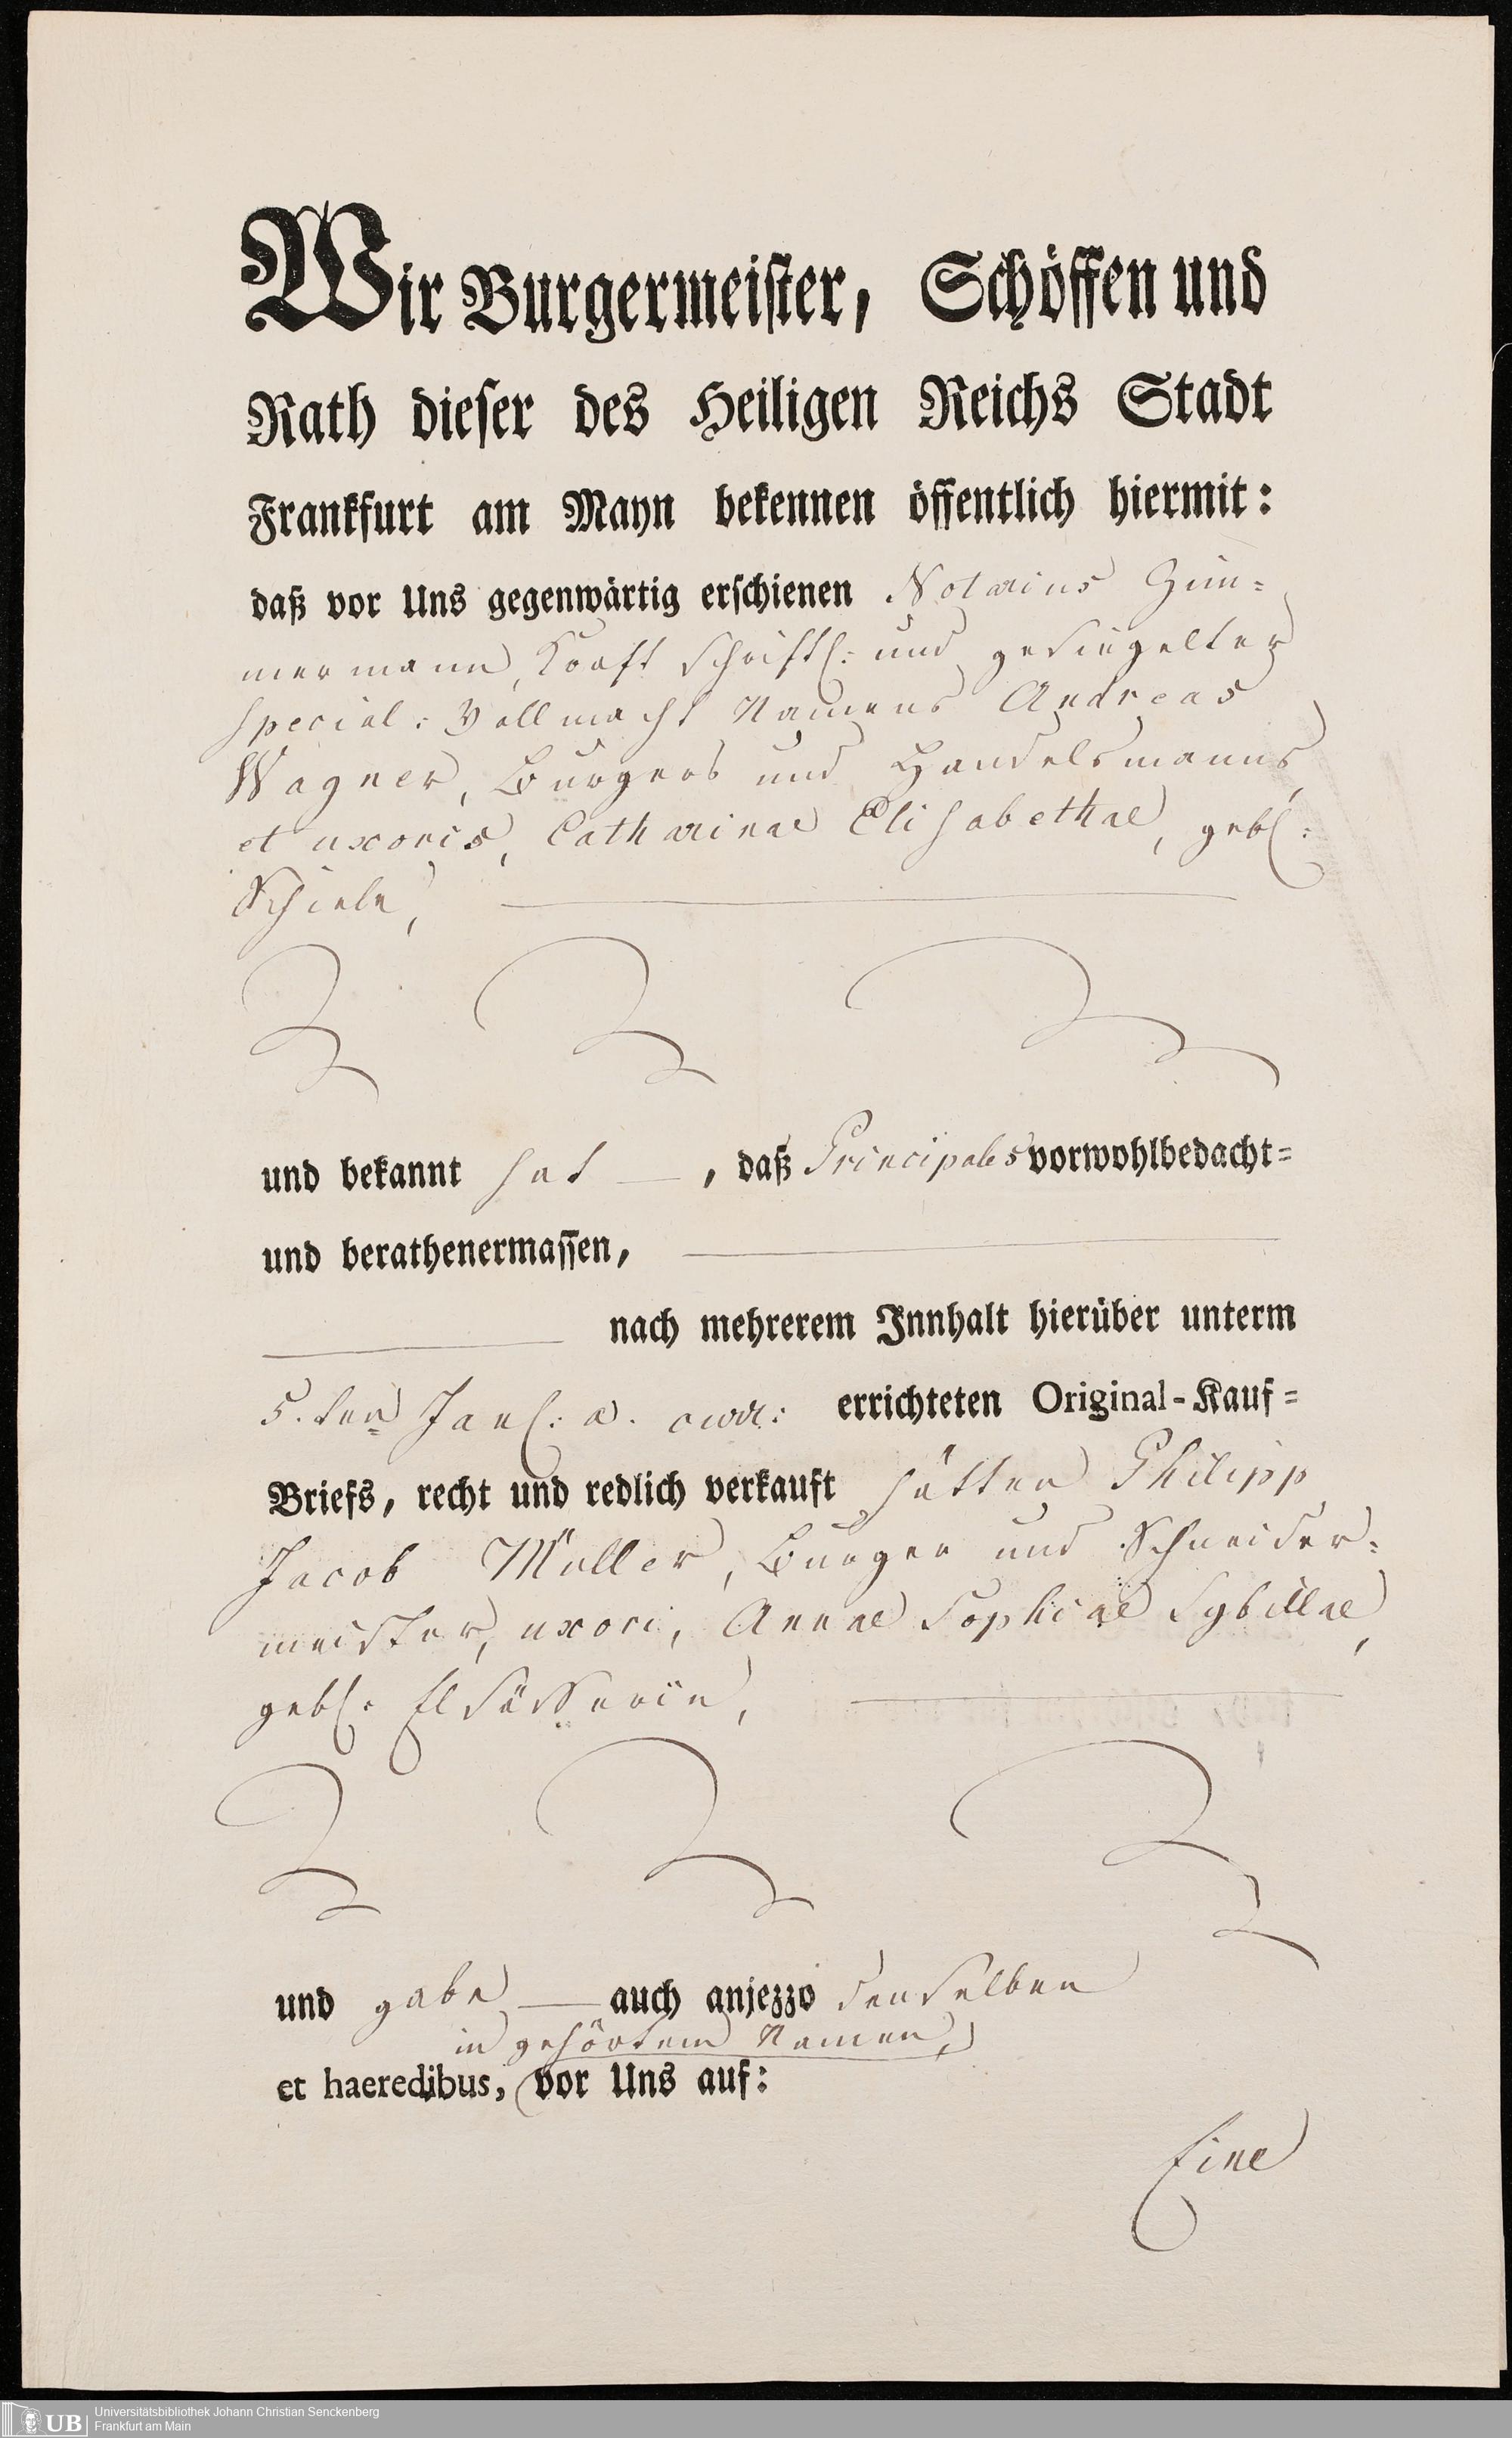 Wir Burgermeister, Schöffen und
Rath dieser des Heiligen Reichs Stadt
Frankfurt am Mayn bekennen öffentlich hiermit:
daß vor Uns gegenwärtig erschienen Notarius Zim-
mermann, Krafft schriftl: und gesiegelter
special: Vollmacht Namens Andreas
Wagner, Burgers und Handelsmanns,
et uxoris, Catharinae Elisabethae, gebl:
Schiele,
und bekannt hat —, daß Principales vorwohlbedacht-
und berathenermassen,
nach mehrerem Innhalt hierüber unterm
5. ten Janl: a. curr: errichteten Original-Kauf-
Briefs, recht und redlich verkauft hätten Philipp
Jacob Müller, Burger und Schneider-
meister, uxori, Annae Sophiae Sybillae,
gebl: Elsässerin,
und gabe — auch anjezzo denselben
in gehörtem Namen,
et haeredibus, vor Uns auf:
Eine
UB Universitätsbibliothek Johann Christian Senckenberg
Frankfurt am Main